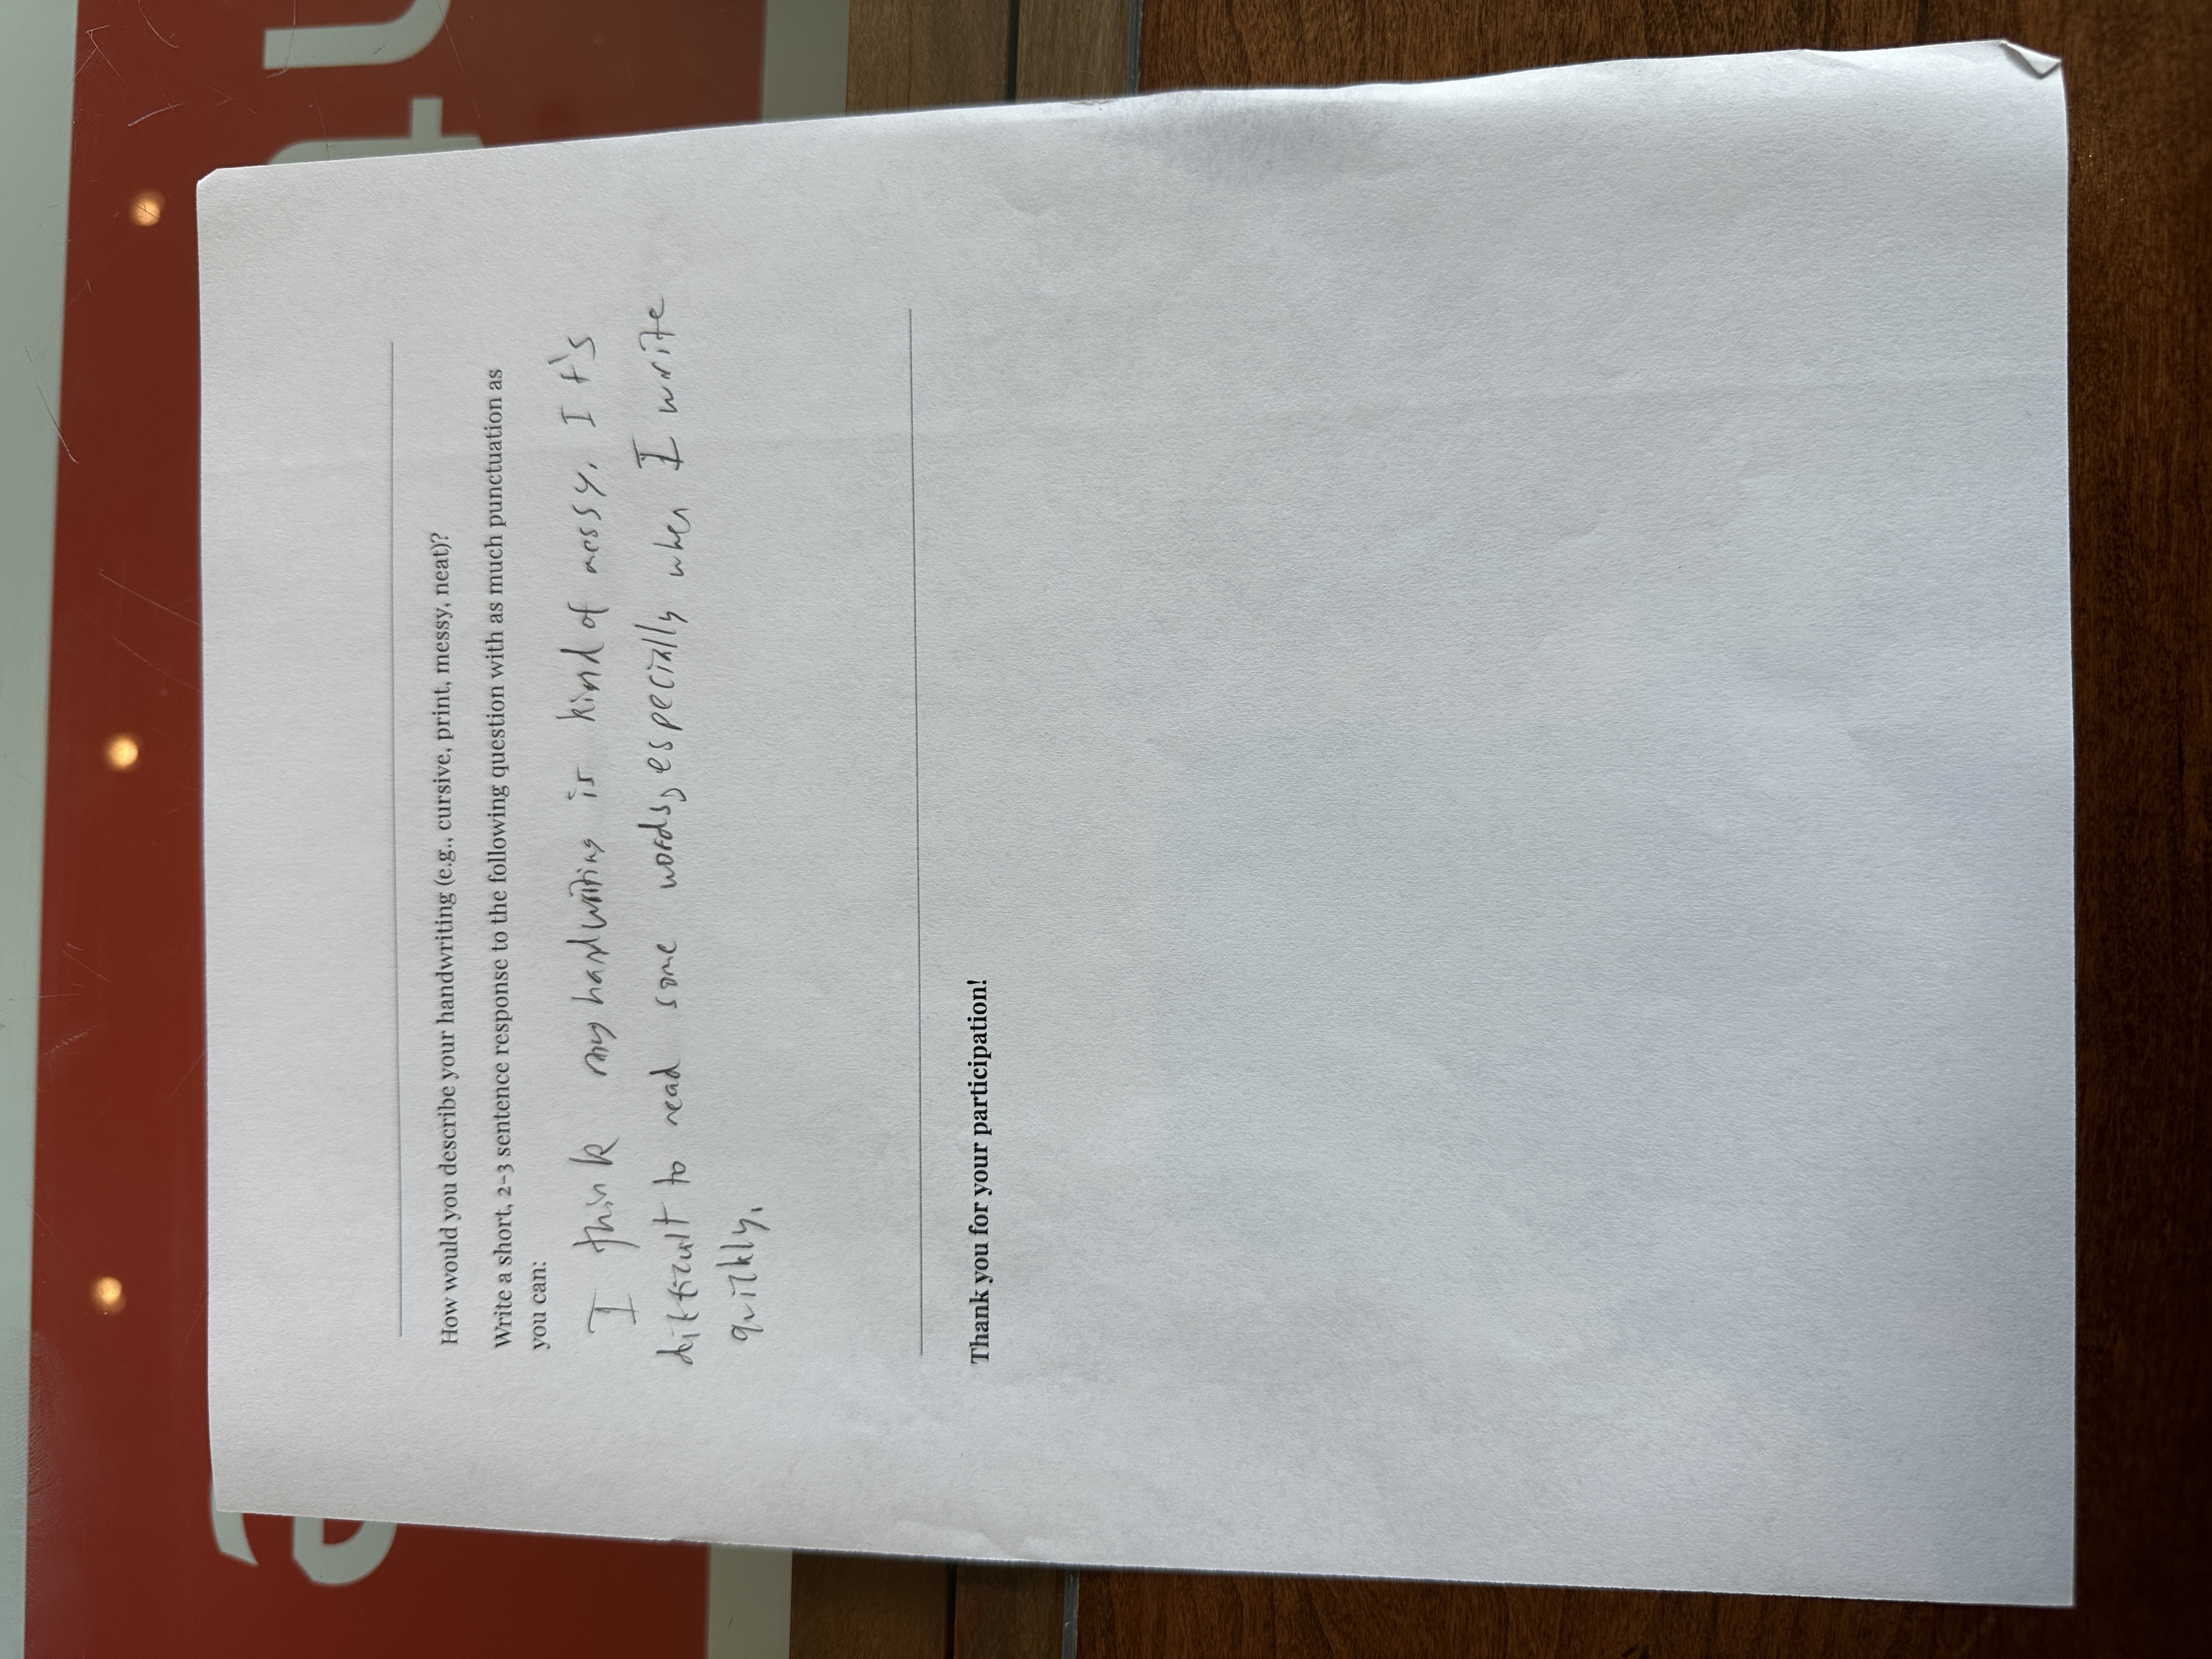 How would you describe your handwriting (e.g., cursive, print, messy, neat)?
Write a short, 2-3 sentence response to the following question with as much punctuation as
you can:
I think my handwriting is kind of messy. It's
difficult to read some words, especially when I write
quickly.
Thank you for your participation!